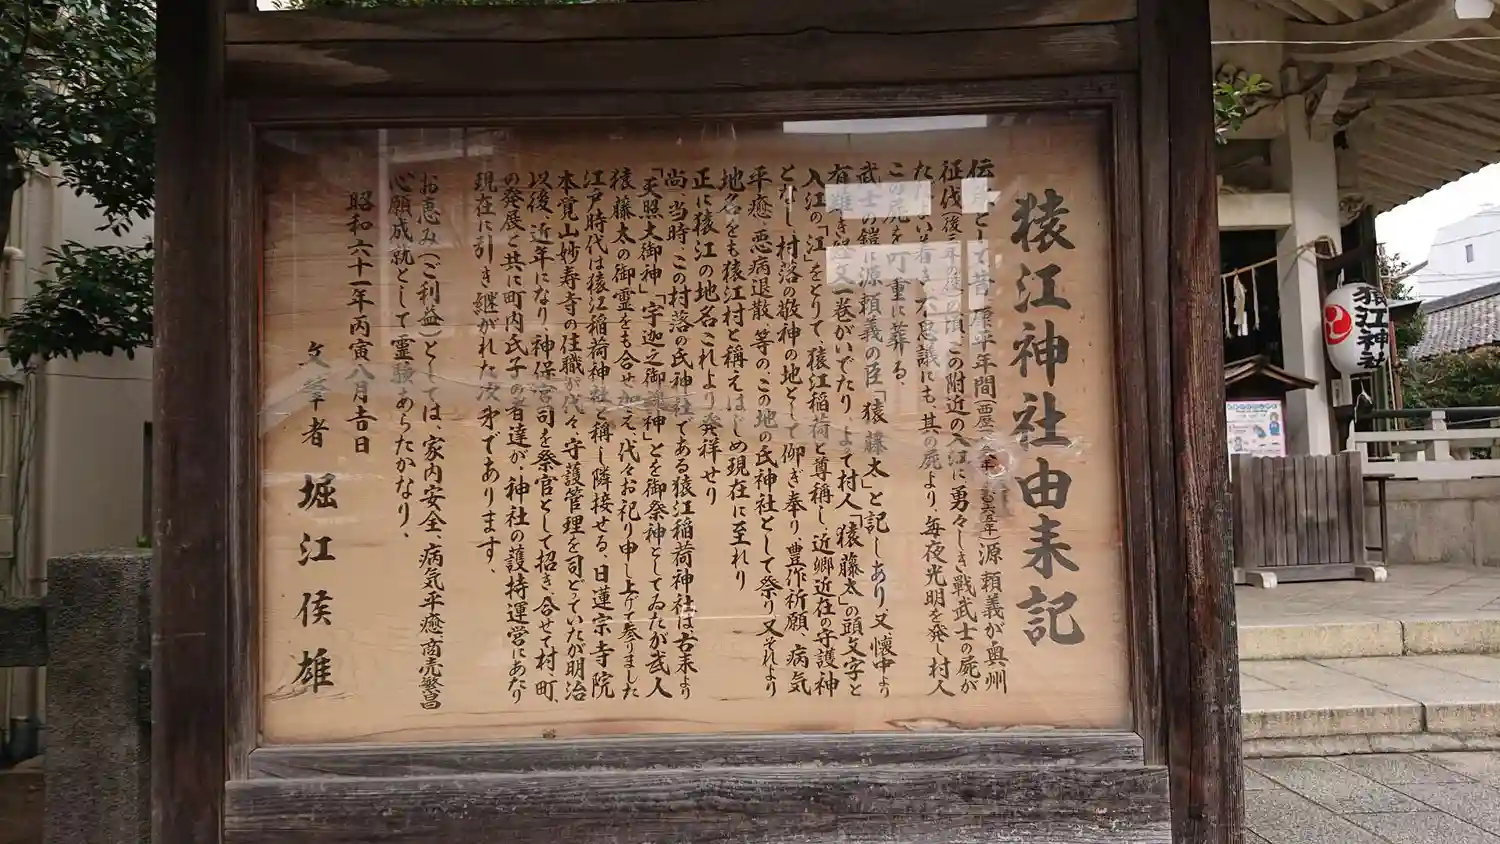 猿江神社由来記
伝承として昔康平年間(西暦 年 六五年)源頼義が奥州
征伐(後三年の役の頃)この附近の入江に勇々しき戦武士の屍が
ただよい着き、不思議にも其の屍より、毎夜光明を発し村人
この屍を町重に葬る、
武士の鎧に源頼義の臣「猿藤太」と記しあり又懐中より
有難き経文一巻がいでたり、よって村人「猿藤太」の頭文字と
入江の「江」をとりて、猿江稲荷と尊称し、近郷近在の守護神
となし、村落の敬神の地として仰ぎ奉り、豊作祈願、病気
平癒、悪病退散、等の、この地の氏神社として祭り又それより
地名をも猿江村と称えはじめ現在に至れり
正に猿江の地名これより発祥せり
尚当時、この村落の氏神社である猿江稲荷神社は古来より
「天照大御神」「宇迦之御魂神」とを御祭神としてゐたが武人
猿藤太の御霊をも合せ加え、代々お祀り申し上げて参りました
江戸時代は猿江稲荷神社と称し隣接せる、日蓮宗寺院
本覚山妙寿寺の住職が代々、守護管理を司どていたが明治
以後、近年になり、神保宮司を祭官として招き、合せて村、町、
の発展と共に町内氏子の若達が、神社の護持運営にあたり
現在に引き継がれた次第であります、
お恵み(ご利益)としては、家内安全、病気平癒商売繁昌
心願成就として霊験あらたかなり、
昭和六十一年丙寅八月吉日
文筆者 堀江侯雄
猿江神社